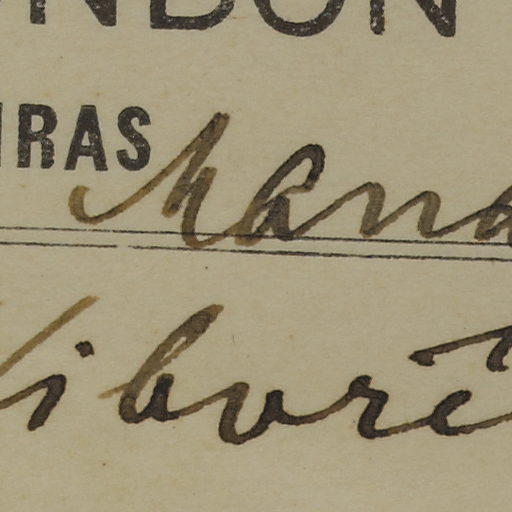 NDON
IRAS Mana
Viborè